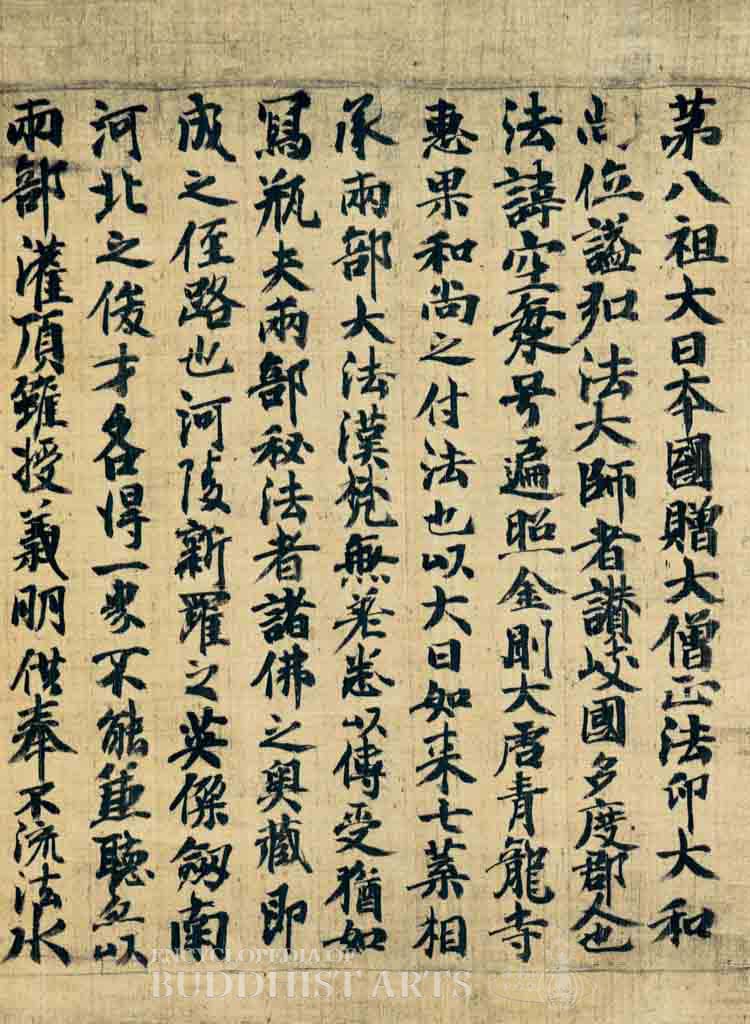 苐八祖大日本國贈大僧正法印大和
尚位謚弘法大師者讚岐國多度郡人也
法諱空海号遍照金剛大唐青龍寺
惠果和尚之付法也以大日如来七葉相
承兩部大法漢梵無差悉以傳受猶如
寫瓶夫兩部秘法者諸佛之奥藏即
成之徑路也河陵新羅之英傑劔南
河北之俊才各得一不能兼聽以
兩部灌頂雖授義明供奉不流法水
ENCYCLOPEDIA OF
BUDDHIST ARTS